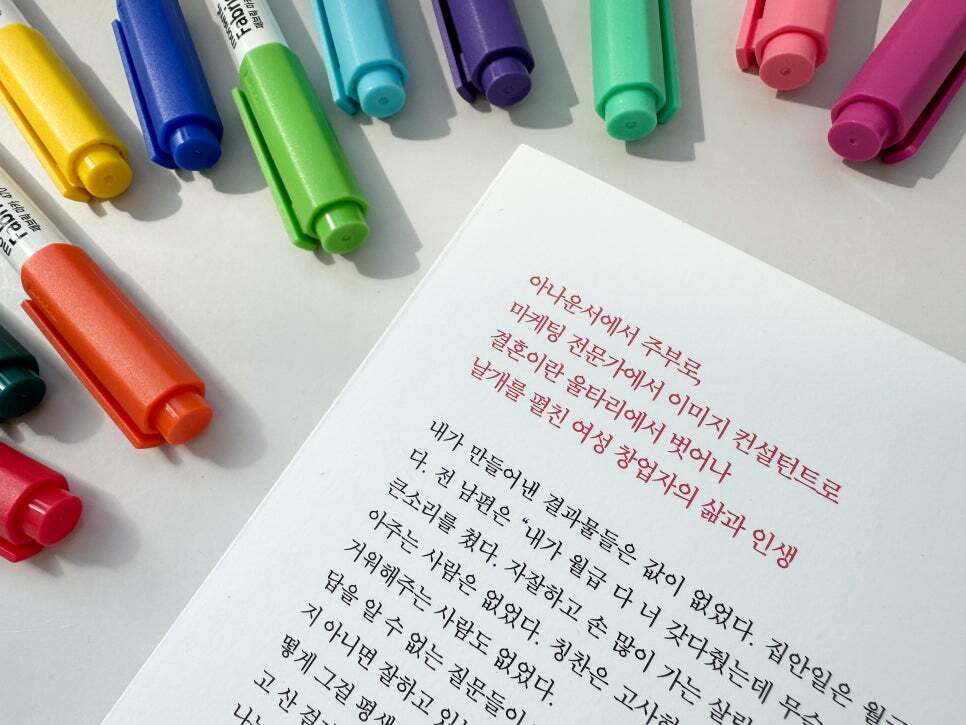 Fabri
패브릭 마카 470
Fabri
아나운서에서 주부로,
마케팅 전문가에서 이미지 컨설턴트로
결혼이란 울타리에서 벗어나
날개를 펼친 여성 창업자의 삶과 인생
내가 만들어낸 결과물들은 값이 없었다. 집안일은 월
다. 전 남편은 “내가 월급 다 너 갖다줬는데 무슨
큰소리를 쳤다. 자잘하고 손 많이 가는 살림
아주는 사람은 없었다. 칭찬은 고사하
거워해주는 사람도 없었다.
답을 알 수 없는 질문들이
지 아니면 잘하고 있
떻게 그걸 평생
고 산 결
나는